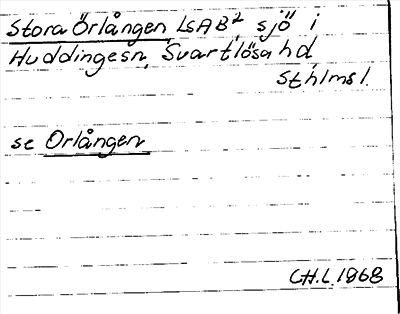 Stora Örlången LSAB², sjö i
Huddinge sn, Svartlösa hd,
Sthlms l.
se Orlången
C.H.L. 1968